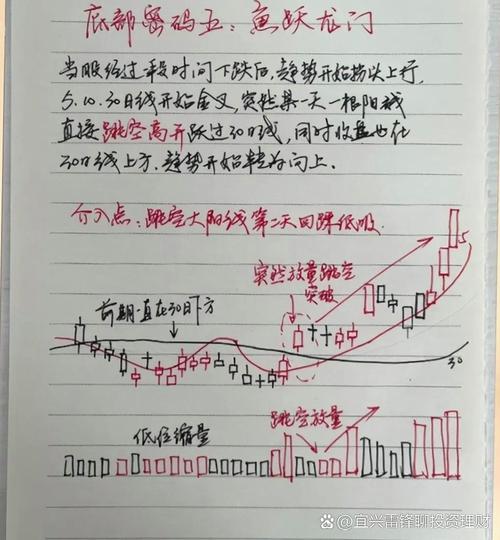 底部密码五:鱼跃龙门
当股经过一段时间下跌后,趋势开始拐头上行,
5.10.30日线开始金叉,突然某一天一根阳线
直接跳空高开跃过30日线,同时收盘也在
30日线上方.趋势开始转为向上.
介入点:跳空大阳线第二天回踩低吸.
突然放量跳空
突破
前期一直在30日下方
5
30
跳空放量
低位缩量
@宜兴雷锋聊投资理财